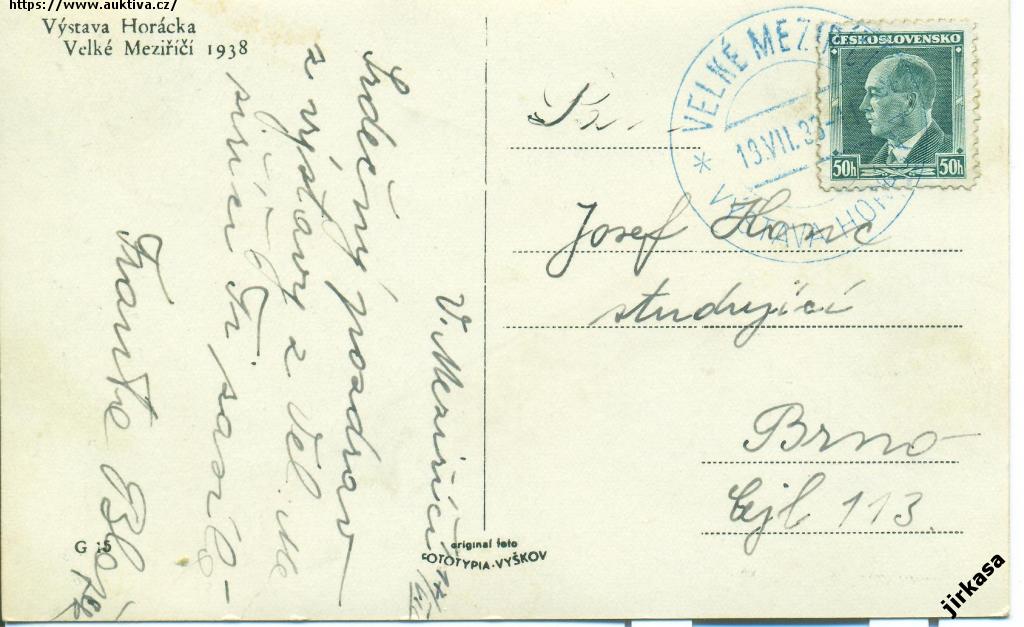 https://www.auktiva.cz/
Výstava Horácka
Velké Meziříčí 1938
Srdečný pozdrav
z výstavy z Vel. Me
V. Meziříčí
G 15
original foto
FOTOTYPIA-VYŠKOV
VELKÉ MEZIŘÍ
13.VII.38
VÝSTAVA HORÁ
ČESKOSLOVENSKO
50h 50h
Josef
studující
Brno
Cejl 113.
jirkasa